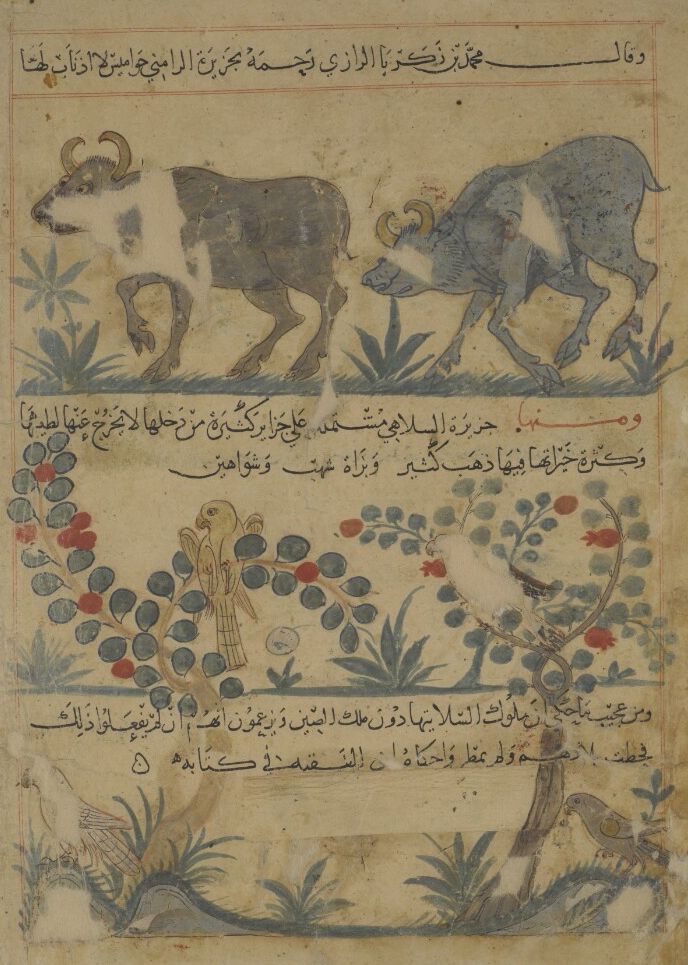 وقال محمد بن زكريا الرازي رحمه بجزيرة الرامني جواميس لا اذناب لها
ومنها جزيرة السلاهي مشتملة على جزاير كثيرة من دخلها لا يخرج عنها لطيبها
وكثرة خيراتها فيها ذهب كثير وبزاة شهب وشواهين
ومن عجيب ما حكي ان ملوك السلا يتهادون ملك الصين ويزعمون انهم ان لم يفعلوا ذلك
قحطت بلادهم ولم تمطر واحكاه ابن الفقيه في كتابه